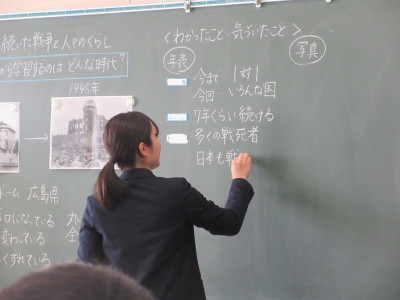 続いた戦争と人々のくらし
から学習するのは どんな時代?
1945年
→
ドーム 広島県
ボロになっている
変わっている
くずれている
<わかったこと、気づいたこと>
年表
写真
今まで 1対1
今回 いろんな国
7年くらい続ける
多くの戦死者
日本も戦